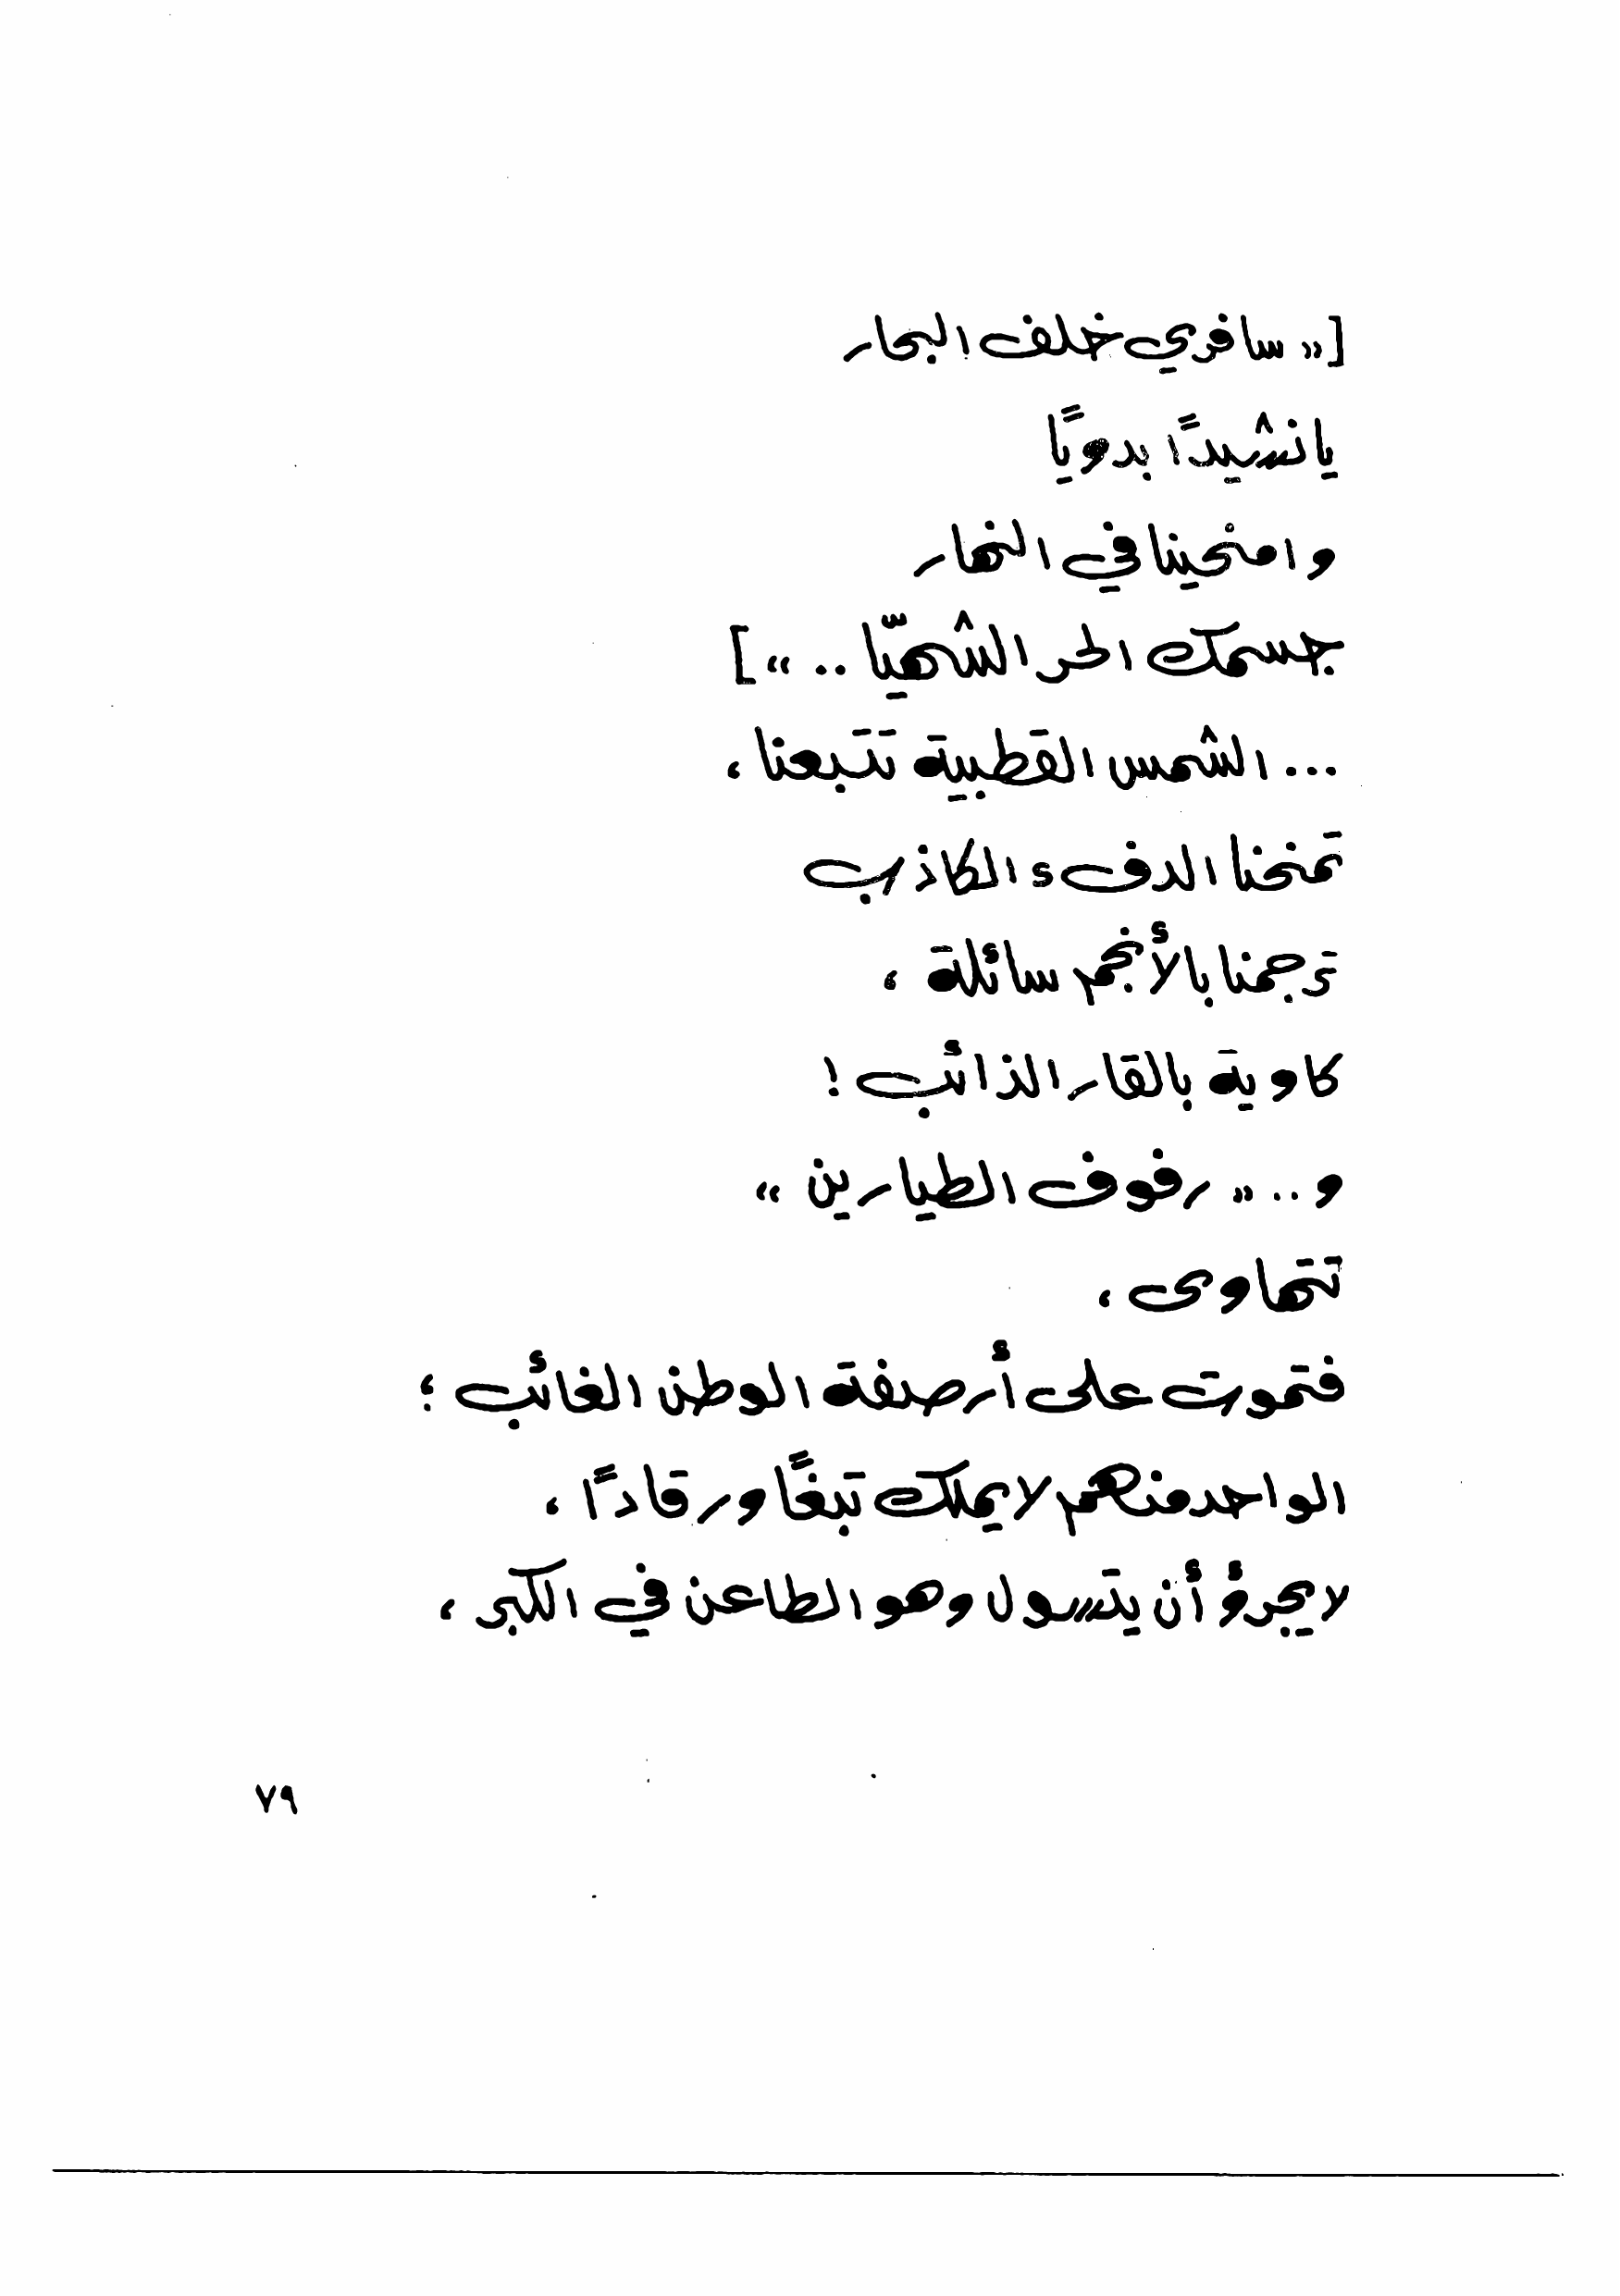 [« سافري خلف البحار
يا نشيدًا بدويًا
وامنحينا في النهار
جسمك الحر الشهيّا .. »]
... الشمس القطبية تتبعنا ،
تمنحنا الدفء الكاذب
ترجمنا بالأنجم سائلة ،
كاوية بالقار الذائب !
و .. « رفوف الطيارين »
تتهاوى ،
فتموت على أرصفة الوطن الغائب ؛
الواحد منهم لا يملك تبغًا ورقادًا ،
لا يجرؤ أن يتسول وهو الطاعن في الكبر ،
٧٩